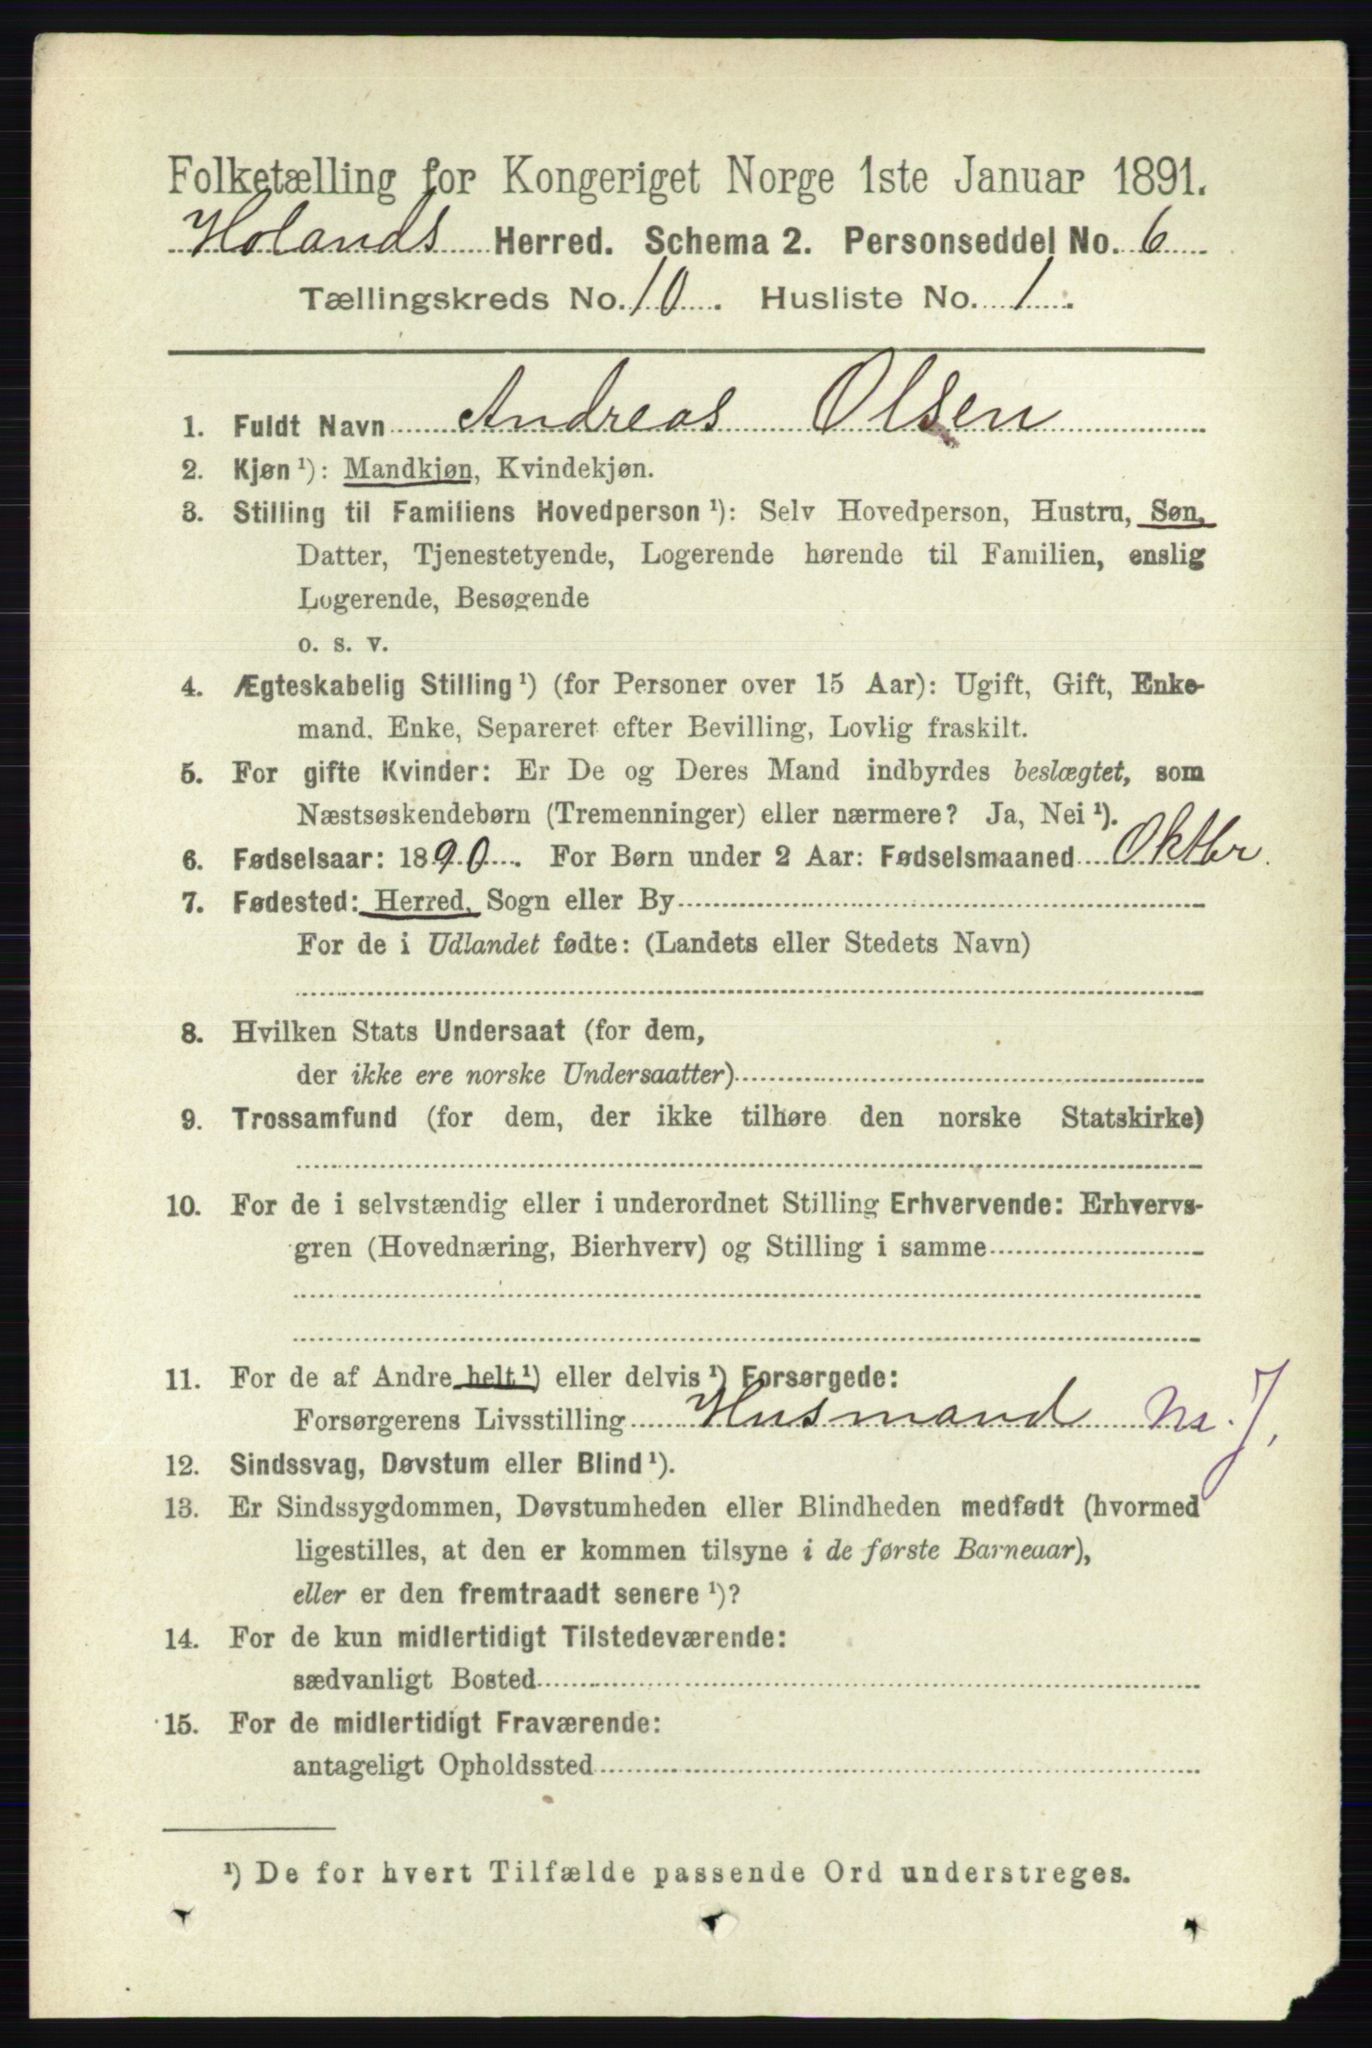 Folketælling for Kongeriget Norge 1ste Januar 1891.
Holands Herred. Schema 2. Personseddel No. 6
Tællingskreds No. 10. Husliste No. 1.
1. Fuldt Navn Andreas Olsen
2. Kjøn ¹): Mandkjøn, Kvindekjøn.
3. Stilling til Familiens Hovedperson ¹): Selv Hovedperson, Hustru, Søn,
Datter, Tjenestetyende, Logerende hørende til Familien, enslig
Logerende, Besøgende
o. s. v.
4. Ægteskabelig Stilling ¹) (for Personer over 15 Aar): Ugift, Gift, Enke-
mand, Enke, Separeret efter Bevilling, Lovlig fraskilt.
5. For gifte Kvinder: Er De og Deres Mand indbyrdes beslægtet, som
Næstsøskendebørn (Tremenninger) eller nærmere? Ja, Nei ¹).
6. Fødselsaar: 1890. For Børn under 2 Aar: Fødselsmaaned Oktbr.
7. Fødested: Herred, Sogn eller By
For de i Udlandet fødte: (Landets eller Stedets Navn)
8. Hvilken Stats Undersaat (for dem,
der ikke ere norske Undersaatter)
9. Trossamfund (for dem, der ikke tilhøre den norske Statskirke)
10. For de i selvstændig eller i underordnet Stilling Erhvervende: Erhvervs-
gren (Hovednæring, Bierhverv) og Stilling i samme
11. For de af Andre helt ¹) eller delvis ¹) Forsørgede:
Forsørgerens Livsstilling Husmand m. J.
12. Sindssvag, Døvstum eller Blind ¹).
13. Er Sindssygdommen, Døvstumheden eller Blindheden medfødt (hvormed
ligestilles, at den er kommen tilsyne i de første Barneaar),
eller er den fremtraadt senere ¹)?
14. For de kun midlertidigt Tilstedeværende:
sædvanligt Bosted
15. For de midlertidigt Fraværende:
antageligt Opholdssted
¹) De for hvert Tilfælde passende Ord understreges.